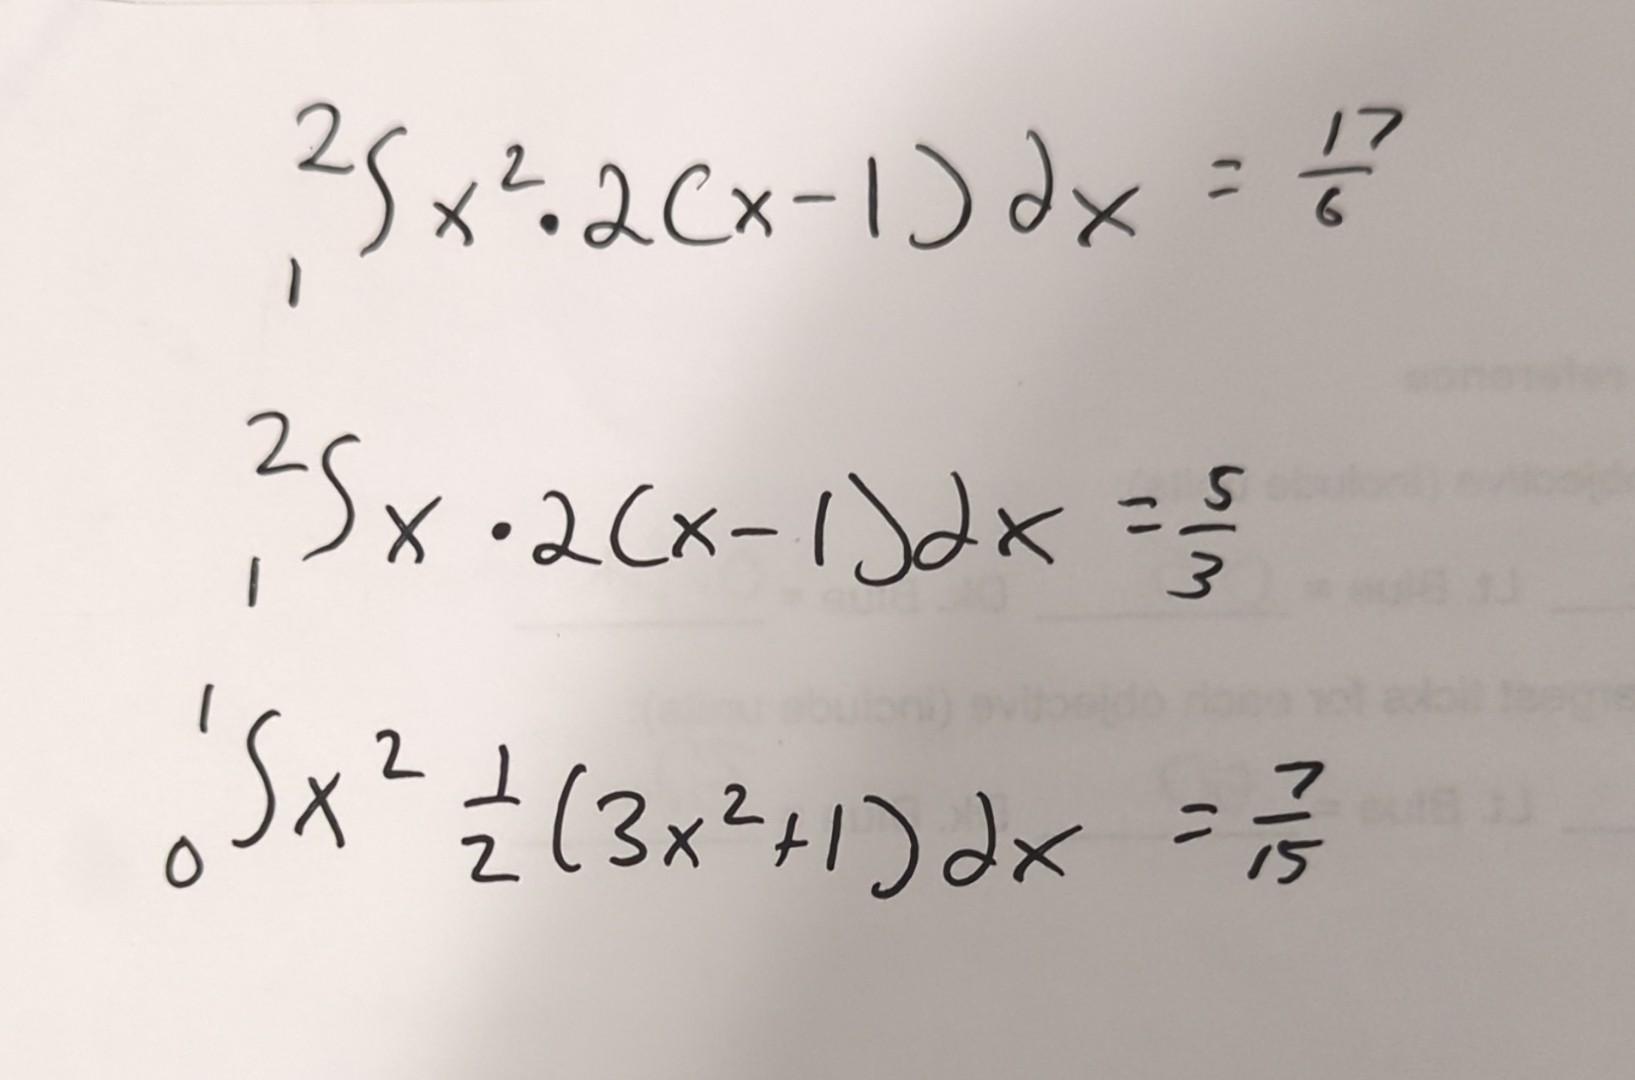 ²₁∫ x² · 2(x-1) dx = 17/6
²₁∫ x · 2(x-1) dx = 5/3
¹₀∫ x² 1/2 (3x²+1) dx = 7/15